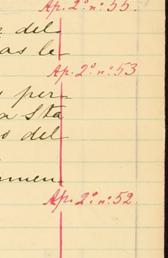 Ap. 2º. nº. 55.
del
as le
Ap. 2º. nº. 53
per-
a Sta
o del
men-
Ap. 2º. nº. 52